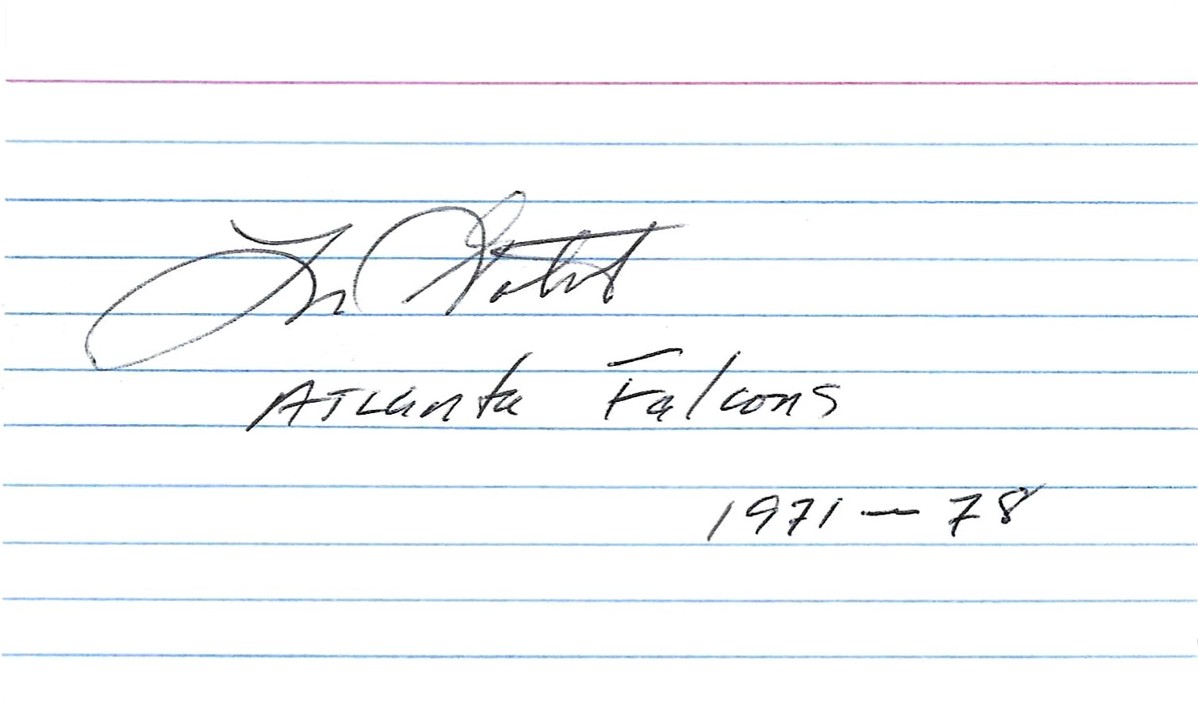 Atlanta Falcons
1971 — 78